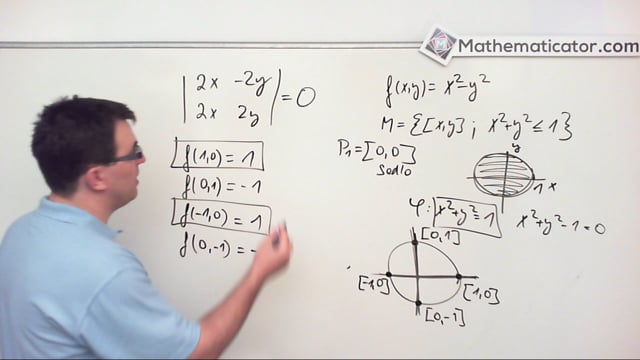 Mathematicator.com
| 2x -2y |
| 2x 2y | = 0
f(1,0) = 1
f(0,1) = -1
f(-1,0) = 1
f(0,-1) = -
f(x,y) = x²-y²
M = {[x,y] ; x²+y² ≤ 1}
P₁ = [0,0]
sedlo
y
1 x
φ: x²+y² = 1
x²+y²-1 = 0
[0,1]
[-1,0]
[1,0]
[0,-1]